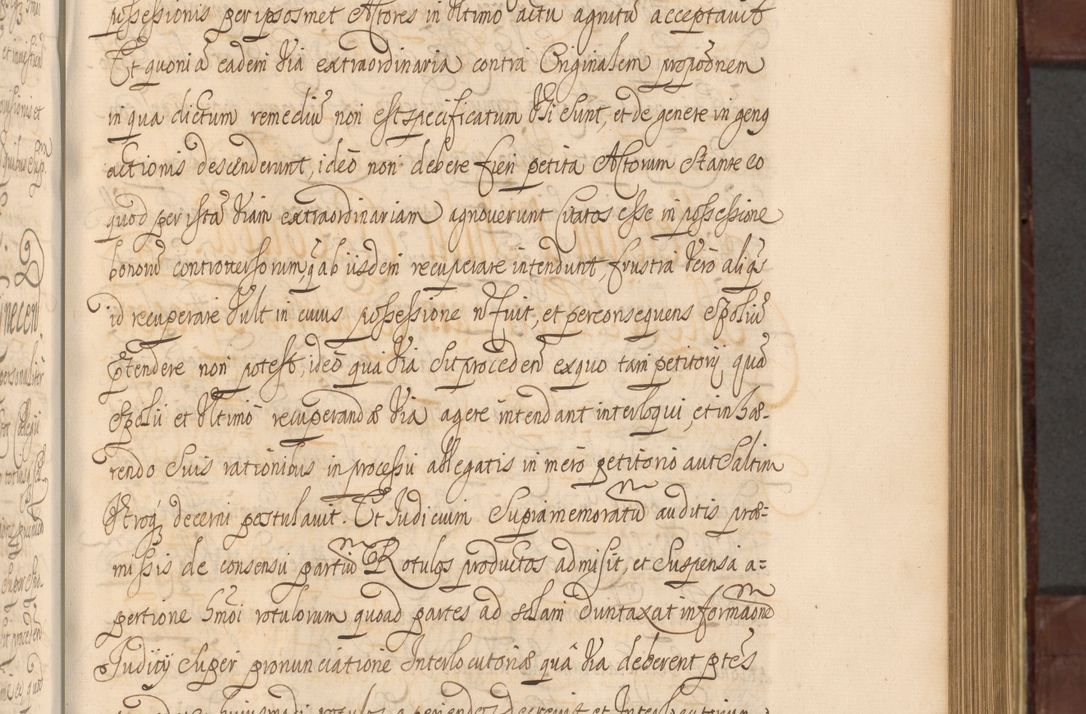 possessionis per ipsosmet Actores in ultimo actu agnitū acceptavit
Et quoniā eadem via extraordinaria contra Originalem propōōnem
in qua dictum remediū non est specificatum usi sunt, et de genere in geng
actionis descenderunt, ideo non debere fieri petita Actorum stante eo
quod per istā viam extraordinariam agnoverunt Citatos esse in possessione
bonorū controversorum q̄ ab iisdem recuperare intendunt, frustra vero aliqs
id recuperare vult in cuius possessione n̄ fuit, et per consequens spoliū
p̄tendere non potest, ideo qua via sit procedend̄ ex quo tam petitorij quā
spolii et ultimo recuperandæ via agere intendant interloqui, et inhæ-
rendo suis rationibus in processu allegatis in mero petitorio aut saltim
utroq decerni postulavit. Et Judicium supramemoratū auditis præ-
missis de consensu partiū Rotulos productos admisit, et suspensa a=
pertione hmōi rotulorum quoad partes ad solam duntaxat informaōnē
Judicij super pronunciatione Interlocutoriæ quâ via deberent ptēs